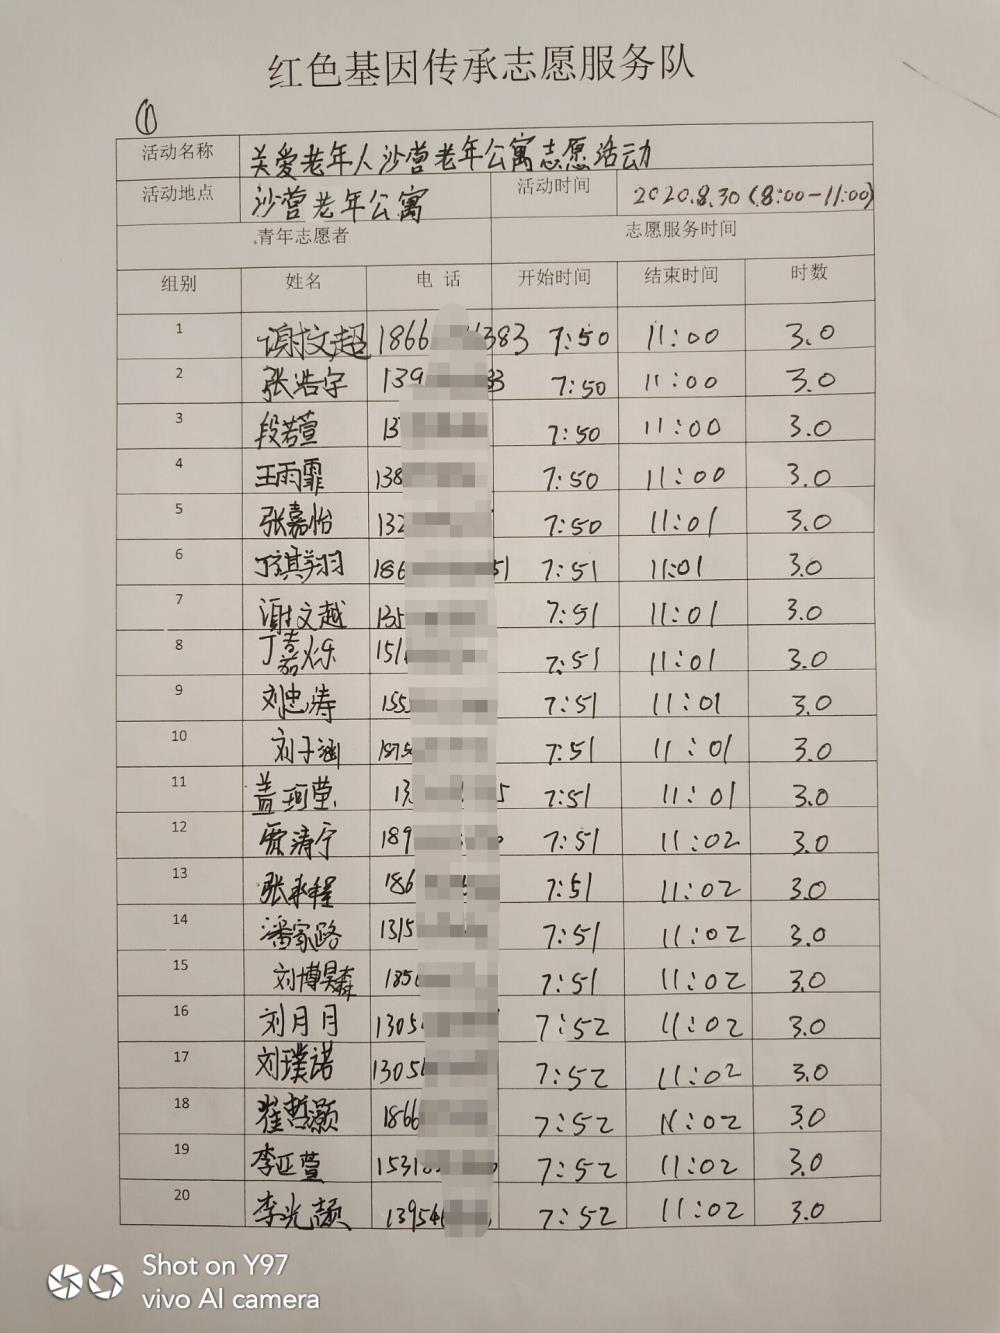 红色基因传承志愿服务队
①
活动名称 关爱老年人沙营老年公寓志愿活动
活动地点 沙营老年公寓 活动时间 2020.8.30(8:00-11:00)
青年志愿者 志愿服务时间
组别 姓名 电话 开始时间 结束时间 时数
1 谢文超 1866 383 7:50 11:00 3.0
2 张浩宇 139 33 7:50 11:00 3.0
3 段若萱 13 7:50 11:00 3.0
4 王雨霏 138 7:50 11:00 3.0
5 张嘉怡 132 7:50 11:01 3.0
6 丁祺翔羽 186 51 7:51 11:01 3.0
7 谢文越 135 7:51 11:01 3.0
8 丁嘉烁 151 7:51 11:01 3.0
9 刘忠涛 155 7:51 11:01 3.0
10 刘子涵 1875 7:51 11:01 3.0
11 盖珂莹 13 5 7:51 11:01 3.0
12 贾清宁 189 7:51 11:02 3.0
13 张承程 186 7:51 11:02 3.0
14 潘家路 1315 7:51 11:02 3.0
15 刘博昊森 185 7:51 11:02 3.0
16 刘月月 1305 7:52 11:02 3.0
17 刘璞诺 1305 7:52 11:02 3.0
18 崔哲灏 1866 7:52 11:02 3.0
19 李亚萱 1531 7:52 11:02 3.0
20 李光颉 13954 7:52 11:02 3.0
Shot on Y97
vivo AI camera